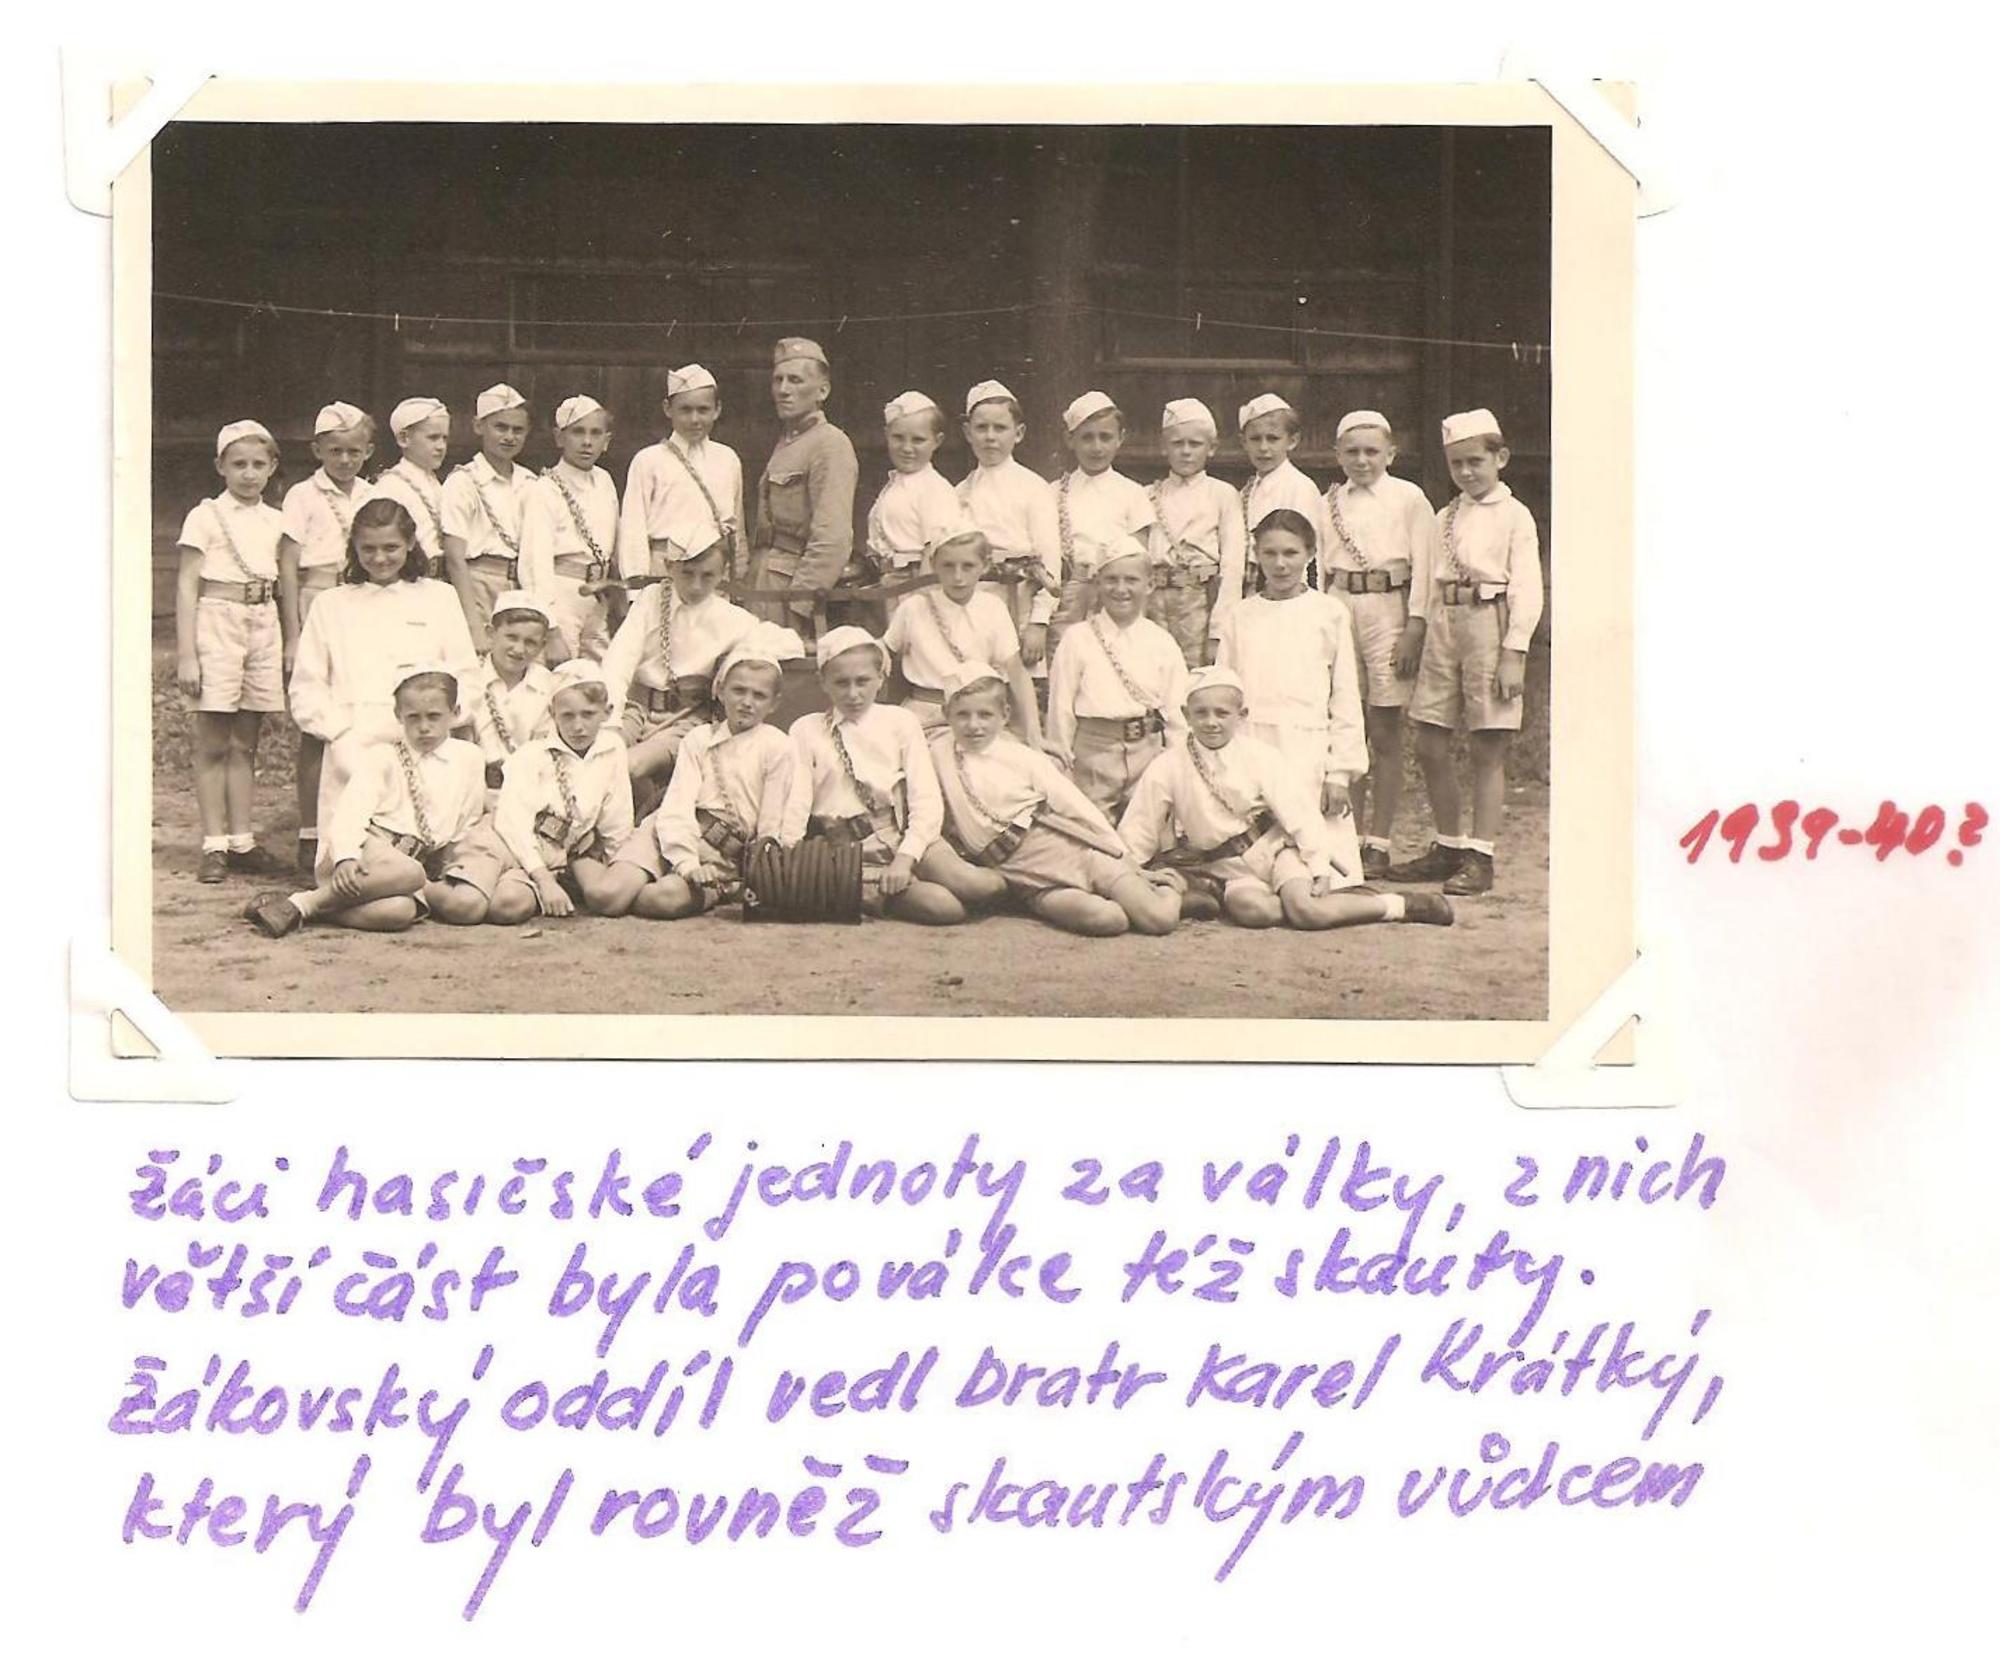 1939-40?
žáci hasičské jednoty za války, z nich
větší část byla po válce též skauty.
Žákovský oddíl vedl bratr Karel Krátký,
který byl rovněž skautským vůdcem